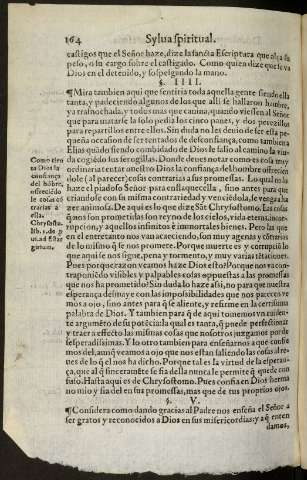 164 Sylua spiritual.
castigos que el Señor haze, dize la sancta Escriptura que alça su
peso, o su cargo sobre el castigado. Como quien dize que se va
Dios en el detenido, y sospesando la mano.
§. IIII.
¶Mira tambien aqui que sentiria toda aquella gente siendo ella
tanta, y padeciendo algunos de los que alli se hallaron hambre,
ya trasnochada, y todos mas que canina, quando viessen al Señor
que para matarse la solo pedia los cinco panes, y dos pececillos
para repartillos entre ellos. Sin duda no les deuio de ser esta pe-
queña occasion de ser tentados de desconfiança, como tambien a
Elias quãdo siendo combidado de Dios le salio al camino la viu-
da cogiẽdo sus serogillas. Donde deues notar como es cosa muy
ordinaria tentar nuestro Dios la confiança del hombre offreciẽn
dole (al parecer) cosas contrarias a sus promessas. Lo qual no lo
haze el piadoso Señor para enflaquecella, sino antes para que
triando se con su misma contrariedad y venciẽdola, le tenga la
zer animosa. De aqui es lo que dize Sãt Chrysostomo. Las cosas
q̃ nos son prometidas son reyno de los cielos, vida eterna, incor-
rupcion, y aquellos infinitos è immortales bienes. Pero las que
en el entretanto nos van acaeciendo, son muy agenas y cõtrarias
de lo mismo q̃ se nos promete. Porque muerte es y corrupciõ lo
que aqui se nos sigue, pena y tormento, y muy varias tẽtaciones.
Pues porque razon vuamos haze Dios esto? Porque nos va con-
traponiẽdo visibles y palpables cosas oppuestas a las promessas
que nos ha prometido? Sin duda lo haze assi, no para que nuestra
esperança desmaye con las impossibilidades que nos parecen ve
mos a ojo, sino antes para q̃ se aliente, y refirme en la certissima
palabra de Dios. Y tambien para q̃ de aqui tomemos vn suficien-
te argumẽto de su potẽcia: la qual es tanta, q̃ puede perfectionar
y traer a effecto las mismas cosas que nosotros juzgamos por de
sesperadissimas. Y lo otro tambien para enseñarnos a que confie
mos del, aunq̃ veamos a ojo que nos estan saliendo las cosas al re-
ues de lo q̃ el nos ha dicho. Porque tal es la virtud de la esperan-
ça, que al q̃ sinceramẽte se fia della nunca le permite q̃ quede con
fuso. Hasta aqui es de Chrysostomo. Pues confia en Dios herma
no mio y fia del en sus promessas, mas que de tus proprios ojos.
§. V.
¶Considera como dando gracias al Padre nos enseña el Señor a
ser gratos y reconocidos a Dios en sus misericordias: y a q̃ enten
damos,
Como tien
ta Dios la
confiança
del hõbre,
offreciẽdo
le cosas cõ
trarias a
ella.
Chrysosto.